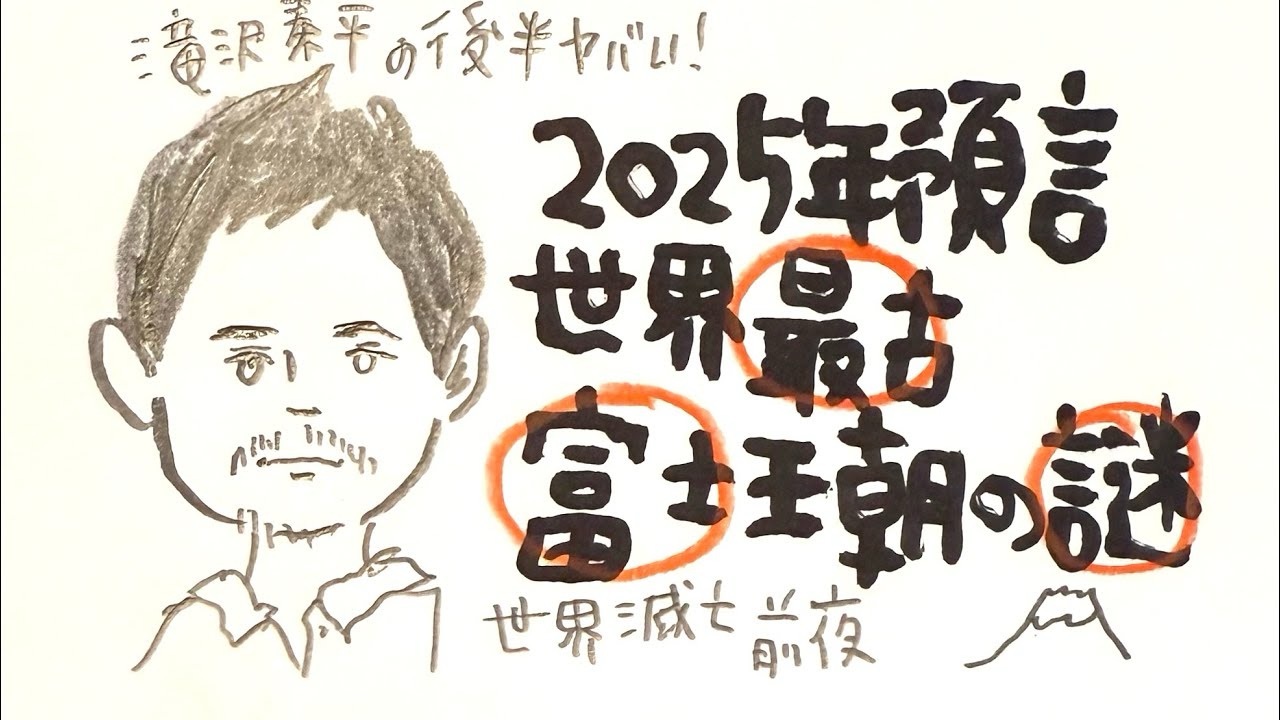 滝沢泰平の後半ヤバい!
2025年預言
世界最古
富士王朝の謎
世界滅亡前夜